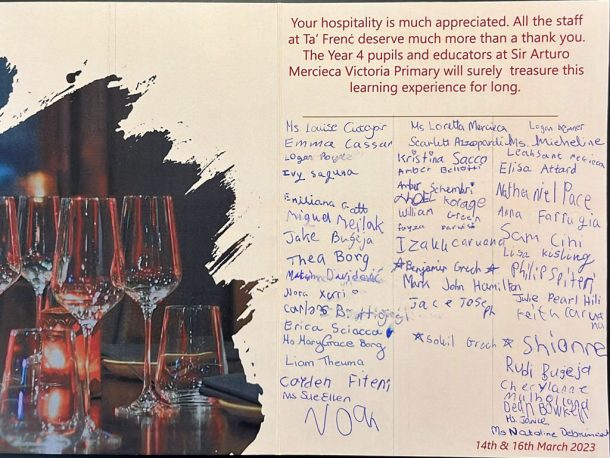 Your hospitality is much appreciated. All the staff
at Ta' Frenċ deserve much more than a thank you.
The Year 4 pupils and educators at Sir Arturo
Mercieca Victoria Primary will surely treasure this
learning experience for long.
Ms Louise
Emma Cassar
Logan
Ivy
Emiliana
Miguel Mejlak
Jake Bugeja
Thea Borg
Nora Xuri
Erica Sciacca
Ms MaryGrace Borg
Liam Theuma
Corden Fiteni
Ms SueEllen
NOAh
Ms Loretta Mercieca
Scarlett Azzopardi
Kristina Sacco
Amber
Amber Schembri
Korage
William Green
Izaak Caruana
Benjamin Grech
Mark John Hamilton
Jace Joseph
Sokil Grech
Logan
Ms. Micheline
Elisa Attard
Nathaniel Pace
Anna Farrugia
Sam Cini
Luisa
Philip Spiteri
Julie Pearl Hili
Keith Caruana
Shianne
Rudi Bugeja
Cherylanne
Mulholland
Dean
Ms. Janice
Ms Nataline Debrincat
14th & 16th March 2023